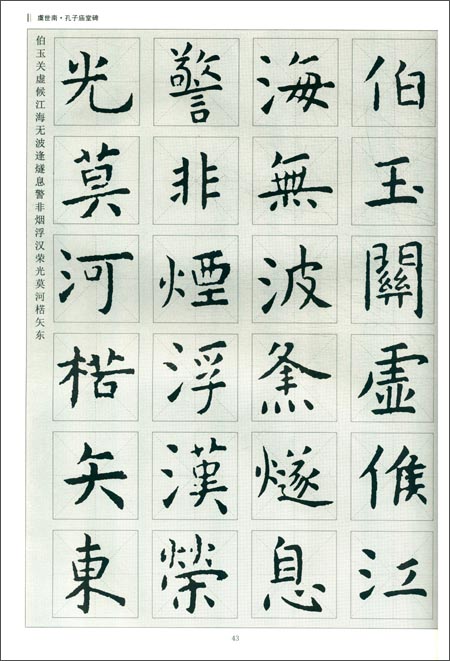 虞世南·孔子庙堂碑
伯玉關虛候江
海無波㷭燧息
警非煙浮漢榮
光莫河楛矢東
伯玉关虚候江海无波逢燧息警非烟浮汉荣光莫河楛矢东
43